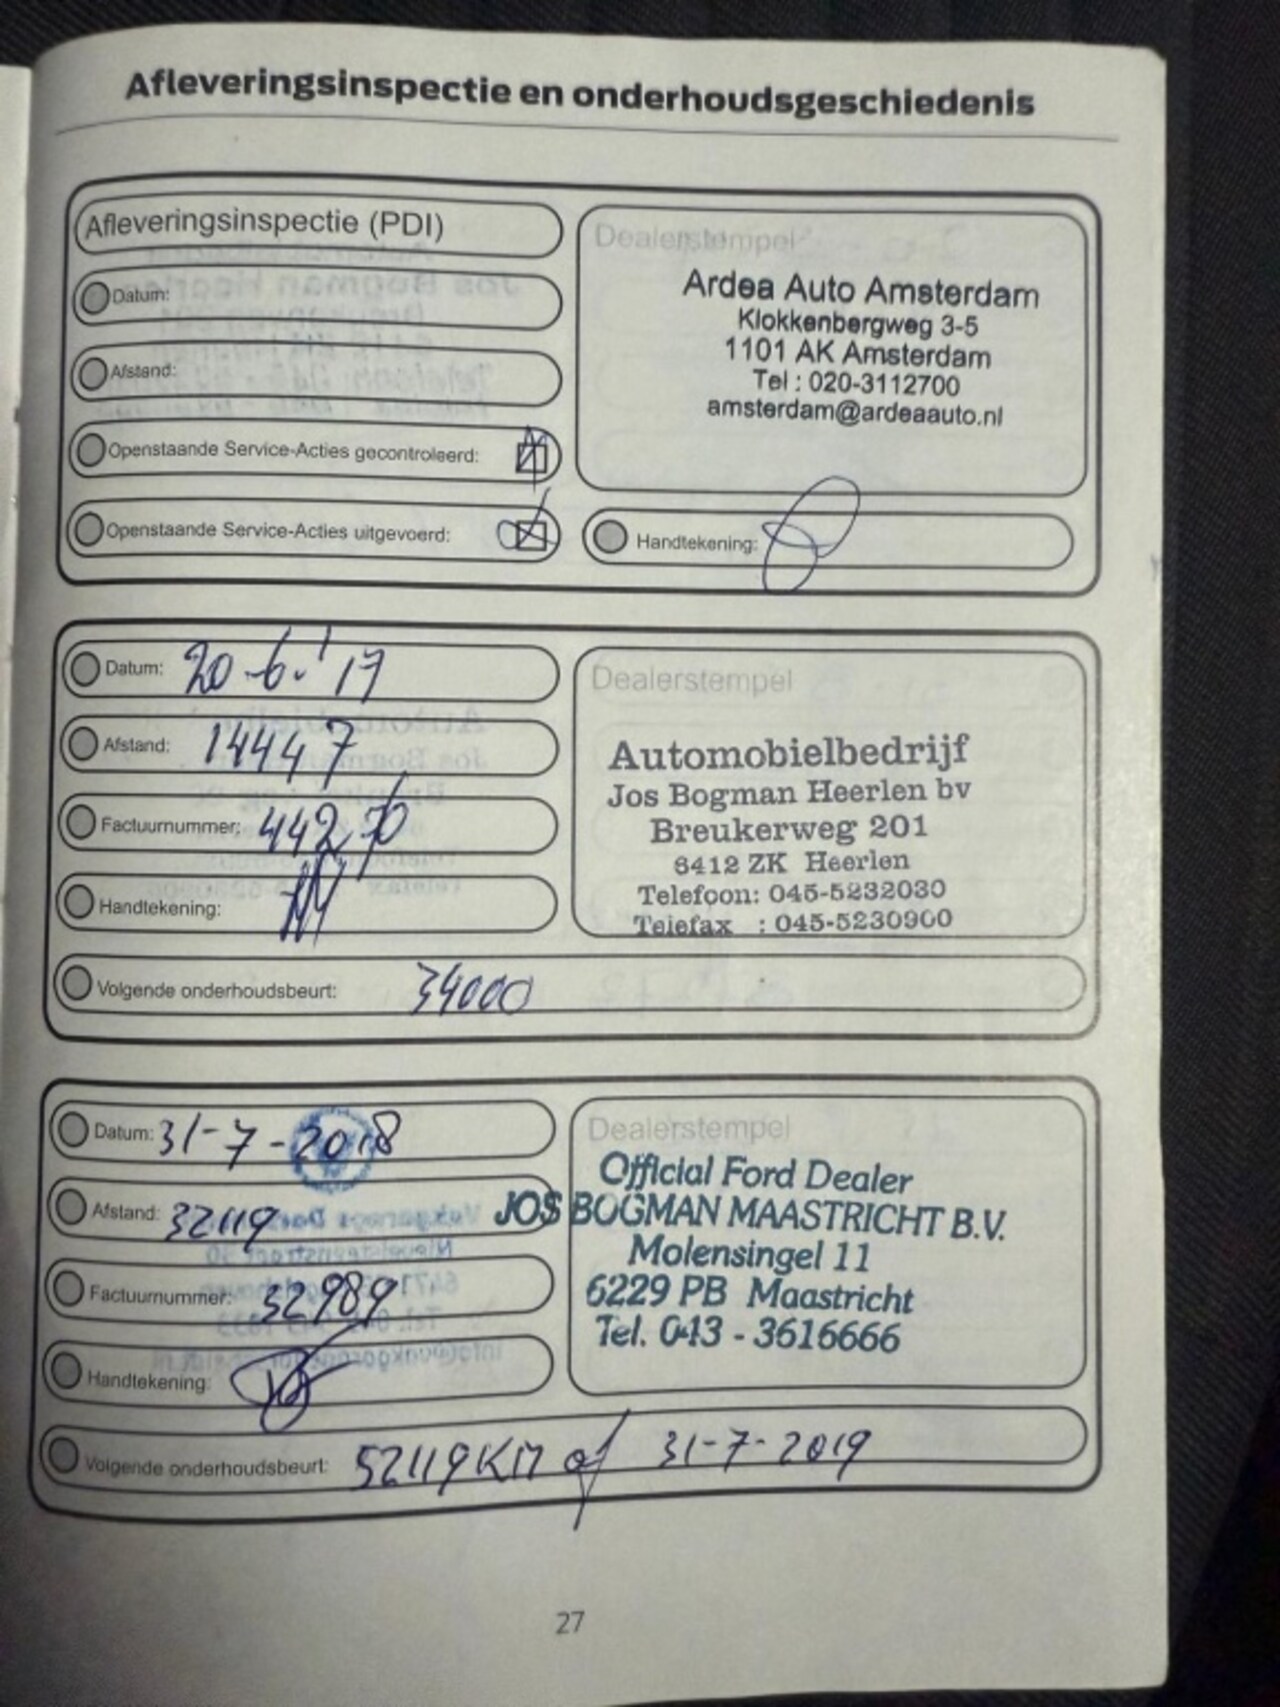 Afleveringsinspectie en onderhoudsgeschiedenis
Afleveringsinspectie (PDI)
Datum:
Afstand:
Openstaande Service-Acties gecontroleerd:
Openstaande Service-Acties uitgevoerd:
Dealerstempel
Ardea Auto Amsterdam
Klokkenbergweg 3-5
1101 AK Amsterdam
Tel : 020-3112700
amsterdam@ardeaauto.nl
Handtekening:
Datum: 20-6-'17
Afstand: 14447
Factuurnummer: 44270
Handtekening:
Dealerstempel
Automobielbedrijf
Jos Bogman Heerlen bv
Breukerweg 201
6412 ZK Heerlen
Telefoon: 045-5232030
Telefax : 045-5230900
Volgende onderhoudsbeurt: 34000
Datum: 31-7-2018
Afstand: 32119
Factuurnummer: 32989
Handtekening:
Dealerstempel
Official Ford Dealer
JOS BOGMAN MAASTRICHT B.V.
Molensingel 11
6229 PB Maastricht
Tel. 043 - 3616666
Volgende onderhoudsbeurt: 52119 KM of 31-7-2019
27